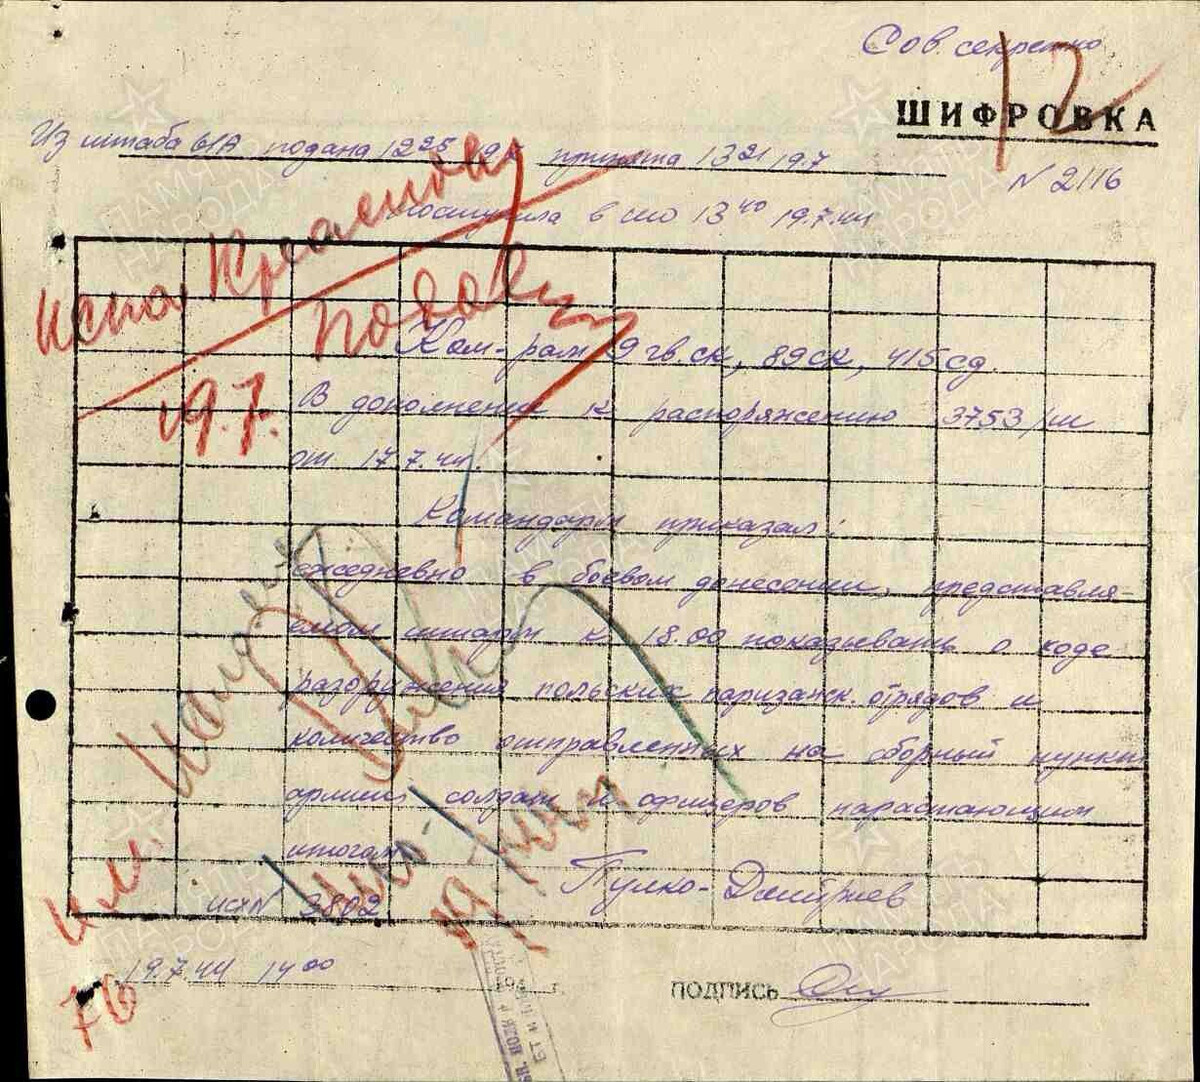 Сов. секретно
ШИФРОВКА
12
Из штаба 61А подана 12 25 19.7 принята 13 21 19.7
N 2116
поступила в сто 13 40 19.7.44
19.7.
Ком-рам 9 гв.ск, 89ск, 415сд.
В дополнение к распоряжению 3753/ш
от 17.7.44.
Командарм приказал:
ежедневно в боевом донесении, представля-
емом штарм к 18.00 показывать о ходе
разоружения польских паризанск. отрядов и
количество отправленных на сборный пункт
армии солдат и офицеров нарастающим
итогом
Пулко-Дмитриев
исх N 3802
19.7.44 14 00
ПОДПИСЬ
76